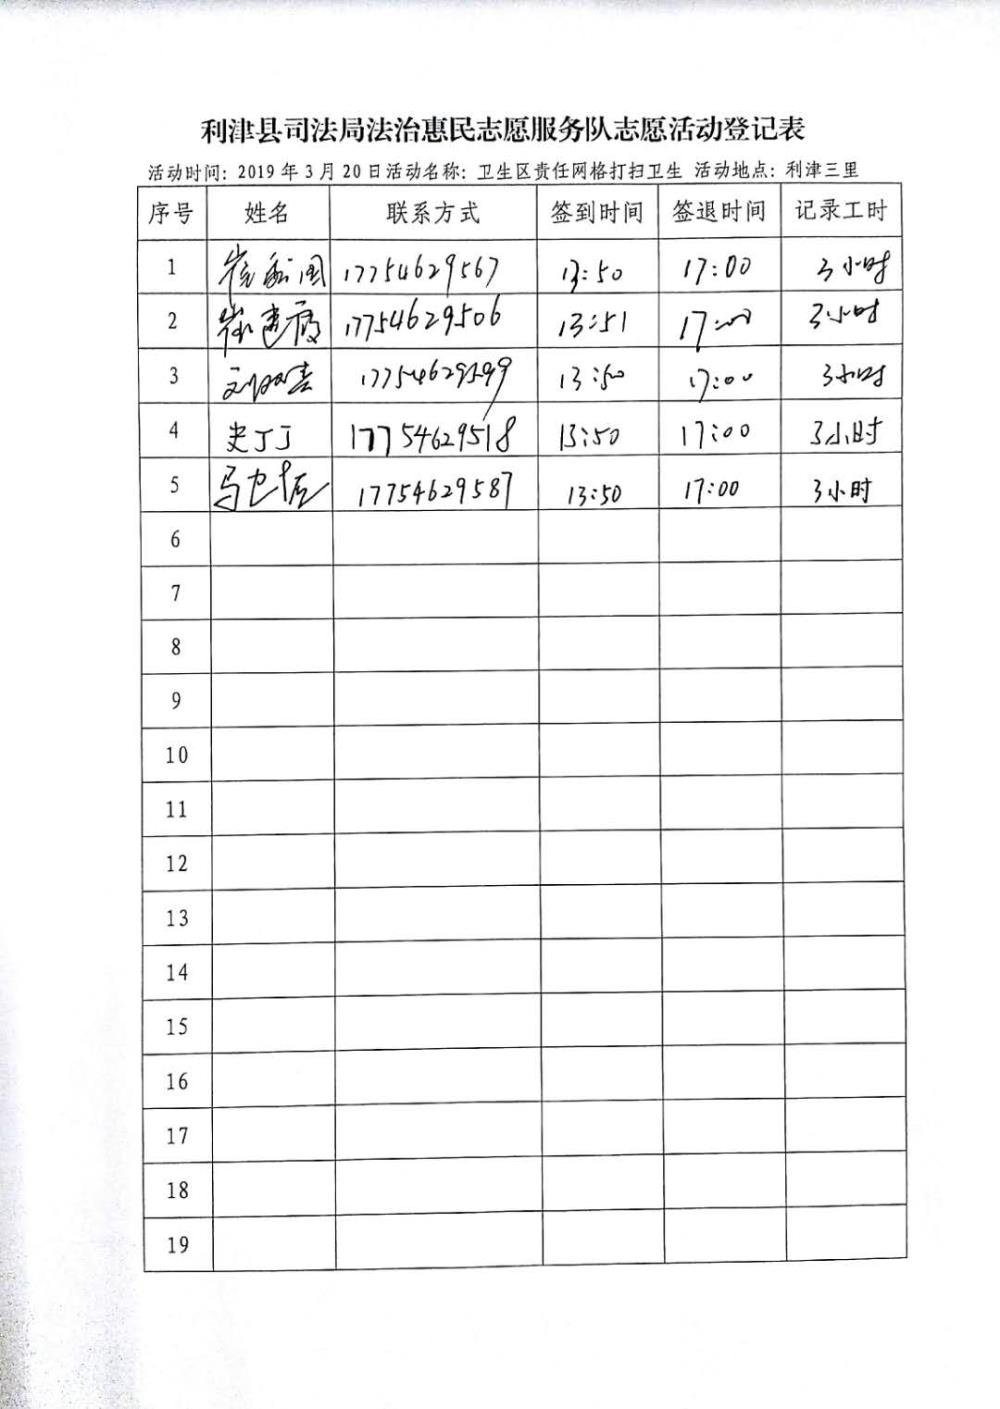 利津县司法局法治惠民志愿服务队志愿活动登记表
活动时间：2019 年 3 月 20 日活动名称：卫生区责任网格打扫卫生 活动地点：利津三里
序号 姓名 联系方式 签到时间 签退时间 记录工时
1 崔 17754629567 13:50 17:00 3小时
2 崔建 17754629506 13:51 17:00 3小时
3 刘 17754629599 13:50 17:00 3小时
4 史丁丁 17754629518 13:50 17:00 3小时
5 马 17754629587 13:50 17:00 3小时
6
7
8
9
10
11
12
13
14
15
16
17
18
19